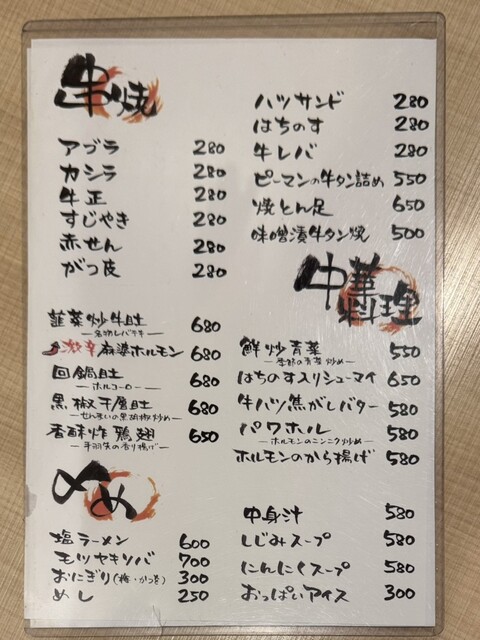 串焼
アブラ 280
カシラ 280
牛正 280
すじやき 280
赤せん 280
がつ皮 280
ハツサンド 280
はちのす 280
牛レバ 280
ピーマンの牛タン詰め 550
焼とん足 650
味噌漬牛タン焼 500
中華料理
韮菜炒牛肚 680
―名物レバテキ―
激辛麻婆ホルモン 680
回鍋肚 680
―ホルコーロー―
黒椒千層肚 680
―せんまいの黒胡椒炒め―
香酥炸鶏翅 650
―手羽先の香り揚げ―
鮮炒青菜 550
―季節の青菜炒め―
はちのす入りシューマイ 650
牛ハツ焦がしバター 580
パワホル 580
―ホルモンのニンニク炒め―
ホルモンのから揚げ 580
〆め
塩ラーメン 600
モツヤキソバ 700
おにぎり(梅・かつを) 300
めし 250
中身汁 580
しじみスープ 580
にんにくスープ 580
おっぱいアイス 300